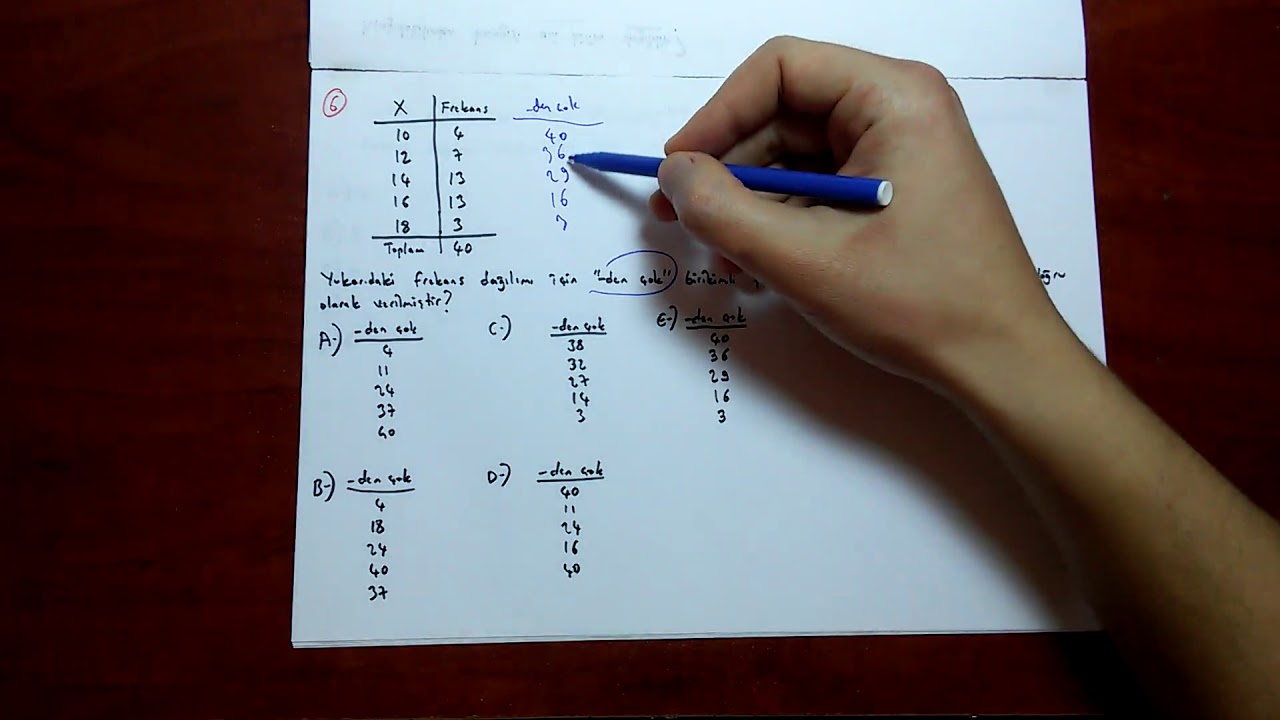 6
X Frekans -den çok
10 4 40
12 7 36
14 13 29
16 13 16
18 3 3
Toplam 40
Yukarıdaki frekans dağılımı için "-den çok" birikimli
olarak verilmiştir?
A-) -den çok
4
11
24
37
40
C-) -den çok
38
32
27
14
3
E-) -den çok
40
36
29
16
3
B-) -den çok
4
18
24
40
37
D-) -den çok
40
11
24
16
40